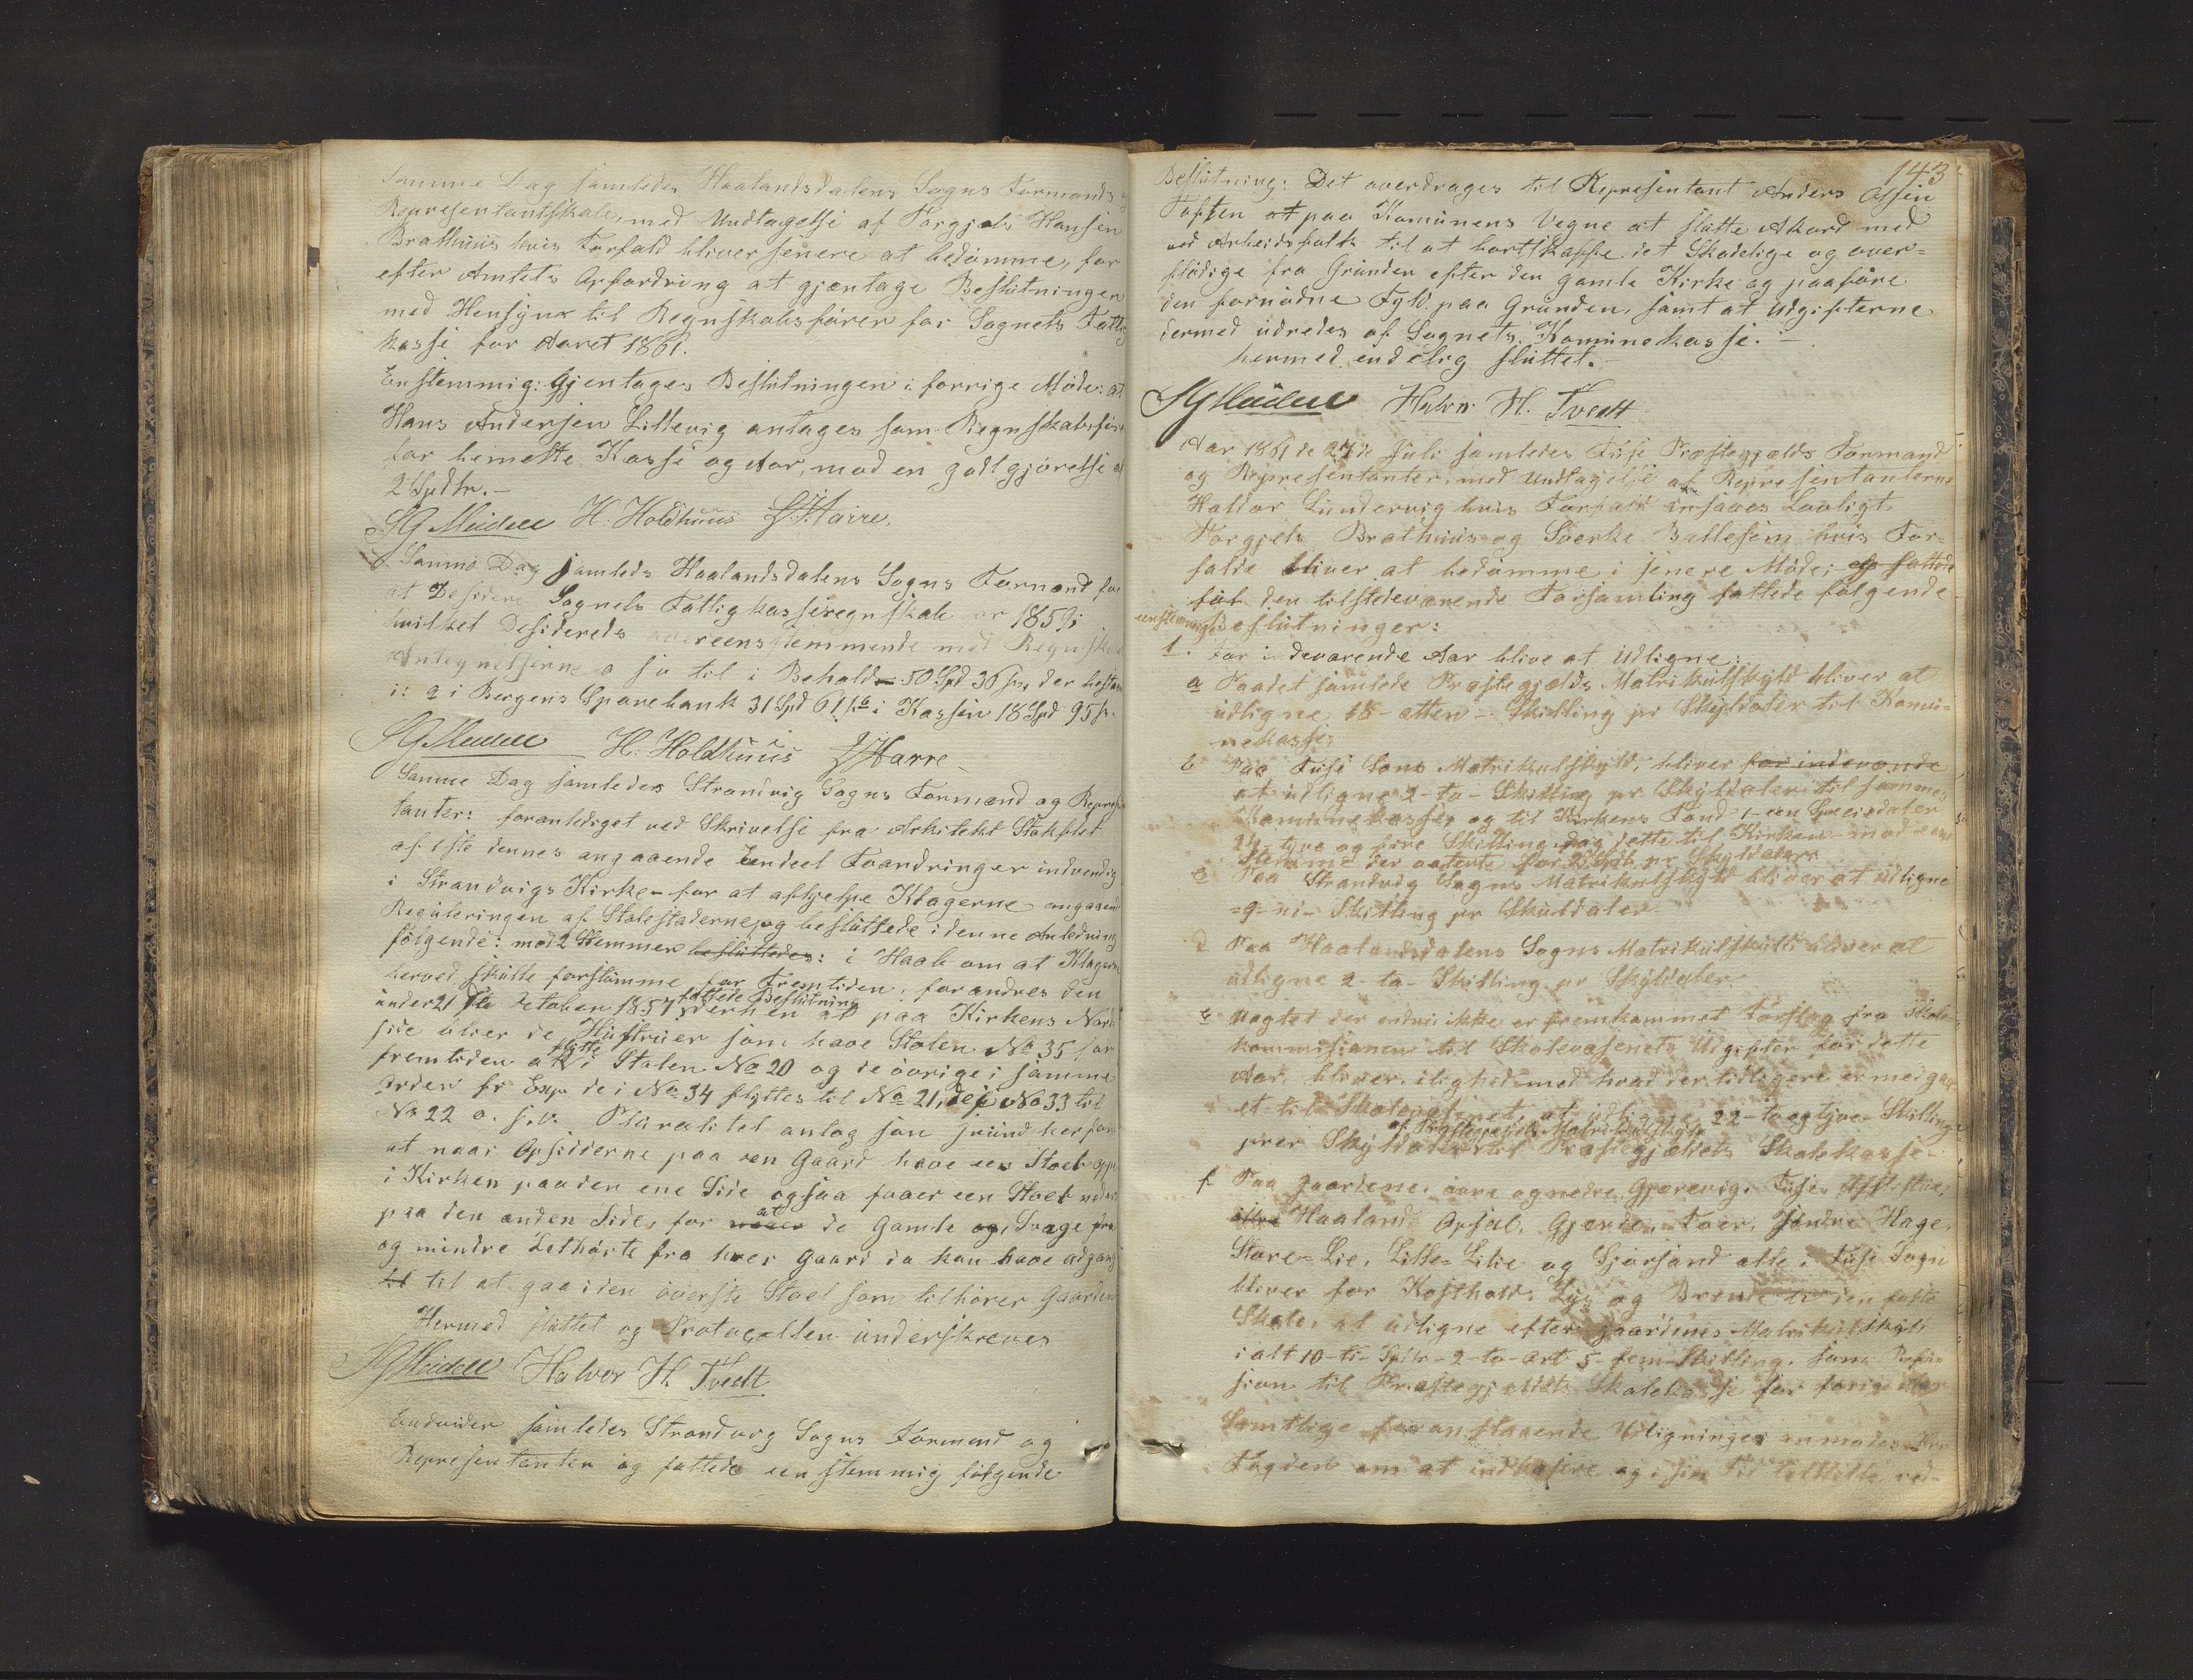 Samme Dag samledes Haalandsdalens Sogns Formands og
Representantskab, med Undtagelse af Torgjels Hansen
Brathuus hvis Forfald bliver senere at bedømme, for
efter Amtets Opfordring at gjentage Beslutningen
med Hensyn til Regnskabsfører for Sognets Fattig
kasse for Aaret 1861.
Enstemmig: Gjentages Beslutningen i forrige Møde: at
Hans Andersen Lillevig antages som Regnskabsfører
for bemeldte Kasse og Aar, mod en godtgjørelse af
2 Spdlr.-
H: Holdhuus
Samme Dag samleds Haalandsdalens Sogns Formænd for
at Desidere Sognets Fattigkasseregnskab for 1859;
hvilket Desidereds overeensstemmende med Regnskabet
Antegnelserne o sv til i Behold 50 Spd 36 s, der bestaar
i: a i Bergens Sparebank 31 Spd 61 s b i Kassen 18 Spd 95 s.
H: Holdhuus
Samme Dag samledes Strandvig Sogns Formænd og Represen
tanter: foranlediget ved Skrivelse fra Arkitekt Stoksflet
af 1ste dennes angaaende Eendeel Foandringer indvendig
i Strandvigs Kirke- for at afhjelpe Klagerne angaaende
Reguleringen af Stolestaderne, og besluttede i denne Anledning
følgende: mod 2 Stemmer besluttedes: i Haab om at Klagerne
herved skulle forstumme for Fremtiden, forandres den
under 21 de October 1857 fattede Beslutning derhen at paa Kirkens Nord
side bliver de Hustruer som have Stolen No 35 for
fremtiden at flytte i Stolen No 20 og de øvrige i samme
Orden fr Exp. de i No 34 flyttes til No 21, de i No 33 til
No 22 o. s. v. Pluralitet antog som grund herfor
at naar Opsidderne paa een Gaard have een Stoel oppe
i Kirken paa den ene Side ogsaa faaer een Stoel nedre
paa den anden Side, for at de Gamle og Svage fra
og mindre Lethørte fra hver Gaard da kan have adgang
til at gaa i den øverste Stoel som tilhører Gaarden
Hermed sluttet og Protocollen underskreves
Halvor H. Tvedt
Endvider samledes Strandvig Sogns Formænd og
Representanter og fattede eenstemmig følgende
143
Beslutning: Det overdrages til Representant Anders Olsen
Toften at paa Komunens Vegne at slutte Akord med
ved Arbeidsfolk til at bortskaffe det Skadelige og over=
flødige fra Grunden efter den gamle Kirke og paaføre
den fornødne Fyld paa Grunden, samt at Udgifterne
dermed udredes af Sognets Komunekasse.-
hermed endelig sluttet.-
Halvor H. Tvedt
Aar 1861 de 27de Juli samledes Fuse Præstegjælds Formænd
og Representanter, med Undtagelse af Representanterne
Haldor Lundervig hvis Forfald ansaaes Lovligt
Torgjels Brathuus og Sverke Ballesem hvis For=
falde bliver at bedømme i senere Møde; og fattede
den tilstedeværende Forsamling fattede følgende
eenstemmige Beslutninger:
1. For indeværende Aar blive at Udligne:
a Paa det samlede Præstegjælds Matrikulskyld bliver at
udligne 18- atten- Skilling pr Skylddaler til Komu=
nekasse;
b Paa Fuse Sons Matrikulskyld, bliver for indeværende
at udligne 2- to- Skilling pr Skylddaler til sammes
Komunekasse og til Kirkens Fond 1- een Speciedaler
24 tyve og fire Skilling, dog dette til Kirken- mod een
Stemme der voterte for pr Skylddaler.
c Paa Strandvig Sogns Matrikulskyld bliver at udligne
=9- ni- Skilling pr Skylddaler.
d Paa Haalandsdalens Sogns Matrikulskyld bliver at
udligne 2- to- Skilling pr Skylddaler.
e Uagtet der endnu ikke er fremkommet Forslag fra Skole=
kommisionen til Skolevæsenets Udgifter for dette
Aar, bliver, i lighed med hvad der tidligere er medgaa
et til Skolevæsenet, at udligne 22- to og tyve- Skilling
prer Skylddaler af Præstegjældets Matrikulskyld til Præstegjældets Skolekasse-
f Paa gaardene, øvre og nedre Gjærevig, Fuse,
Haaland, Opsal, Gjerde, Tveit, Søndre Hage,
Store=Lie, Litle=Lilie og Sjørsand alle i Fuse Sogn
bliver for Kosthold, Lys og Brende til den faste
Skole, at udligne efter gaardenes Matrikulskyld
i alt 10- ti- Spdlr- 2- to- Ort 5- fem- Skilling, som Refu=
sion til Præstegjældets Skolekasse for forige Aar
Samtlige foranstaaende Udligninger anmodes Hr
Fogden om at indkasere og i sin Tid tilstille ved=